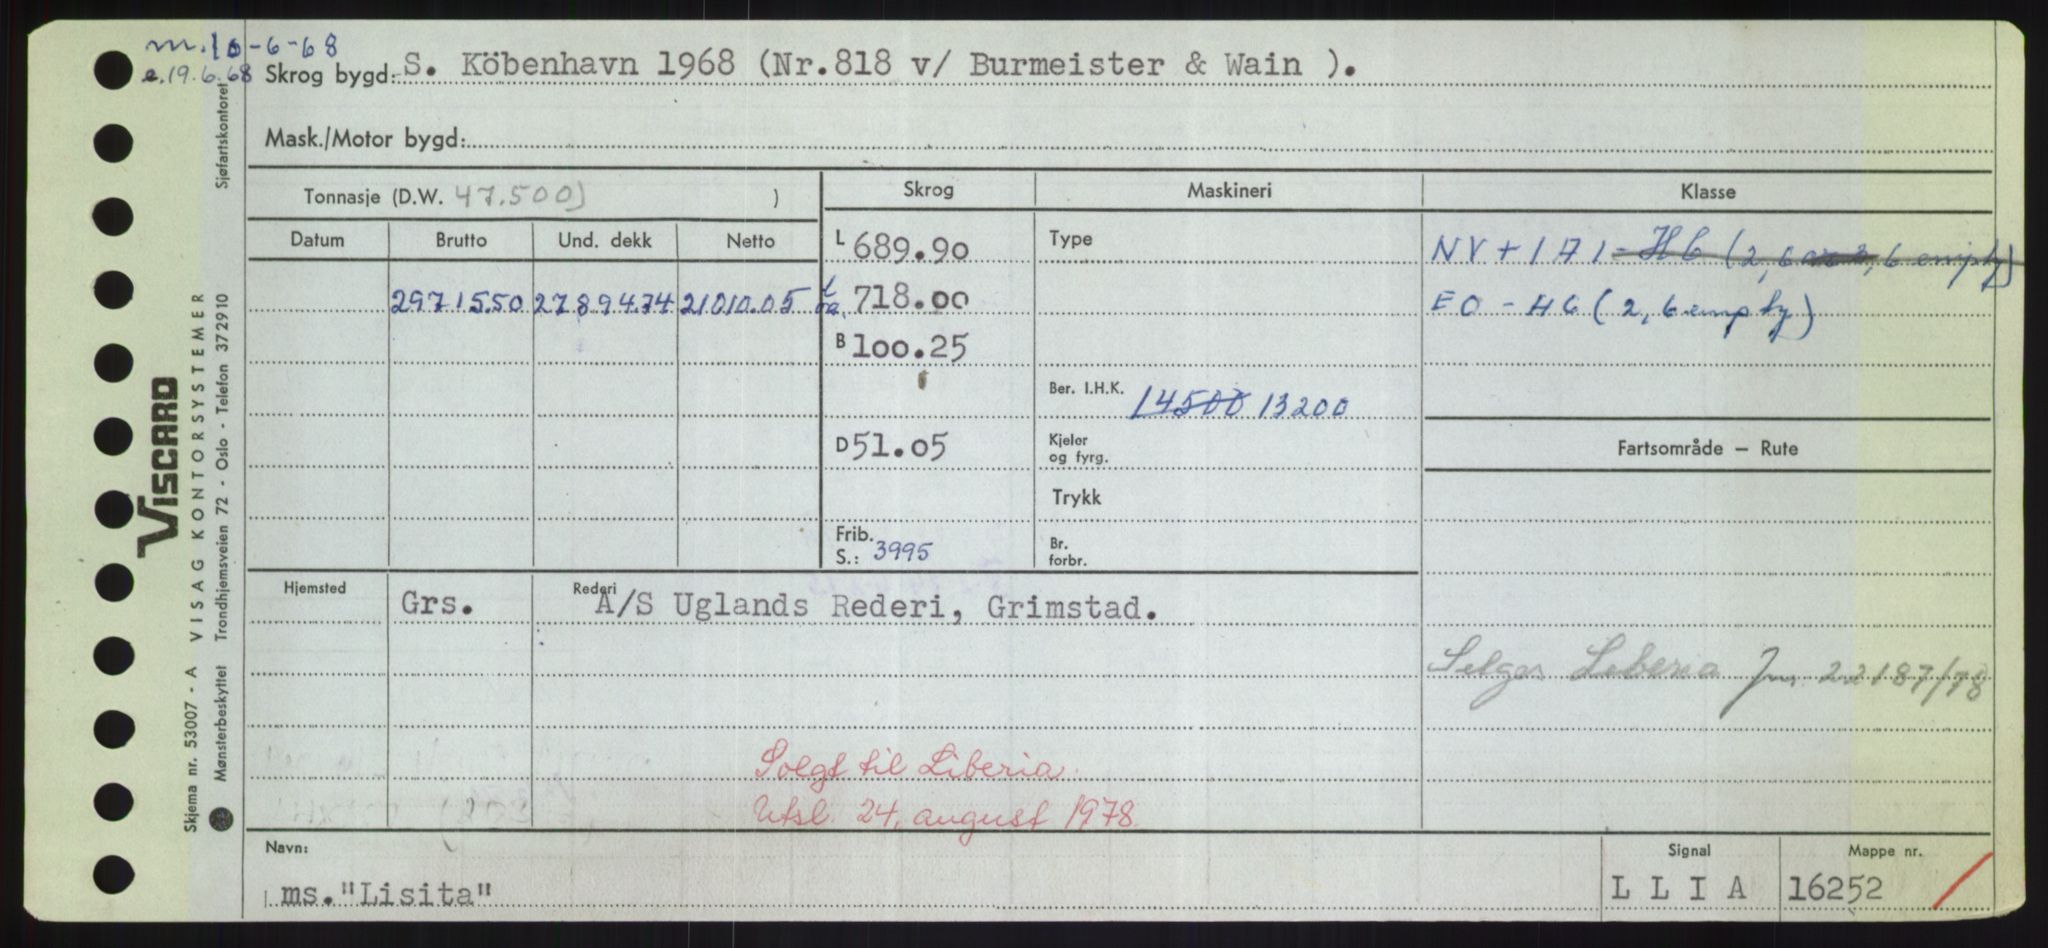 m.10-6-68
e.19.6.68 Skrog bygd: S. Köbenhavn 1968 (Nr.818 v/ Burmeister & Wain ).
Mask./Motor bygd:
Tonnasje (D.W. 47.500) ) Skrog Maskineri Klasse
Datum Brutto Und. dekk Netto L 689.90 Type NV + 1A1 - HC (2,6 , 6 empty)
29715.50 27894.74 21010.05 718.00 EO - HC (2,6 empty)
B 100.25
Ber. I.H.K. 14500 13200
D 51.05 Kjeler og fyrg. Fartsområde – Rute
Trykk
Frib. S.: 3995 Br. forbr.
Hjemsted Grs. Rederi A/S Uglands Rederi, Grimstad.
Selges Liberia Jnr. 22187/78
Solgt til Liberia.
Utsl. 24. august 1978.
Navn: Signal Mappe nr.
ms."Lisita" L L I A 16252
Skjema nr. 53007 - A VISAG KONTORSYSTEMER Sjøfartskontoret
Mønsterbeskyttet Trondhjemsveien 72 - Oslo - Telefon 372910
VISCARD